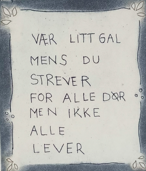 VÆR LITT GAL
MENS DU
STREVER
FOR ALLE DØR
MEN IKKE
ALLE
LEVER